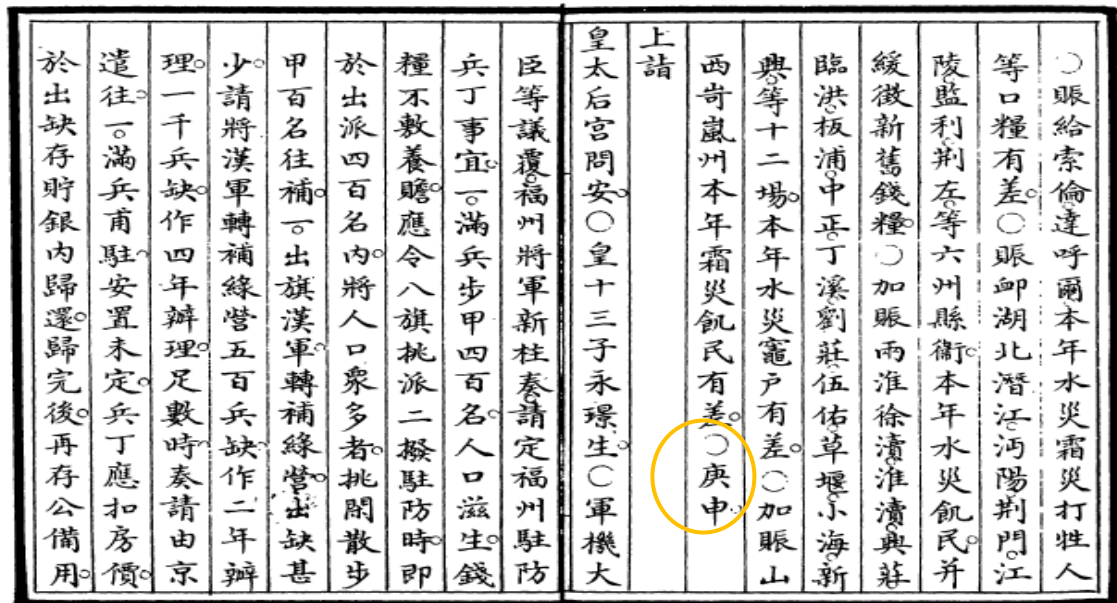 ○賑給索倫達呼爾本年水災霜災打牲人
等口糧有差○賑卹湖北潛江沔陽荆門江
陵監利荆左等六州縣衞本年水災飢民并
緩徵新舊錢糧○加賑兩淮徐瀆淮瀆興莊
臨洪板浦中正丁溪劉莊伍佑草堰小海新
興等十二場本年水災竈户有差○加賑山
西岢嵐州本年霜災飢民有差○庚申
上詣
皇太后宫問安○皇十三子永璟生○軍機大
臣等議覆福州將軍新柱奏請定福州駐防
兵丁事宜一滿兵步甲四百名人口滋生錢
糧不敷養贍應令八旗挑派二撥駐防時即
於出派四百名内將人口衆多者挑閑散步
甲百名往補一出旗漢軍轉補綠營出缺甚
少請將漢軍轉補綠營五百兵缺作二年辦
理一千兵缺作四年辦理足數時奏請由京
遣往一滿兵甫駐安置未定兵丁應扣房價
於出缺存貯銀内歸還歸完後再存公備用